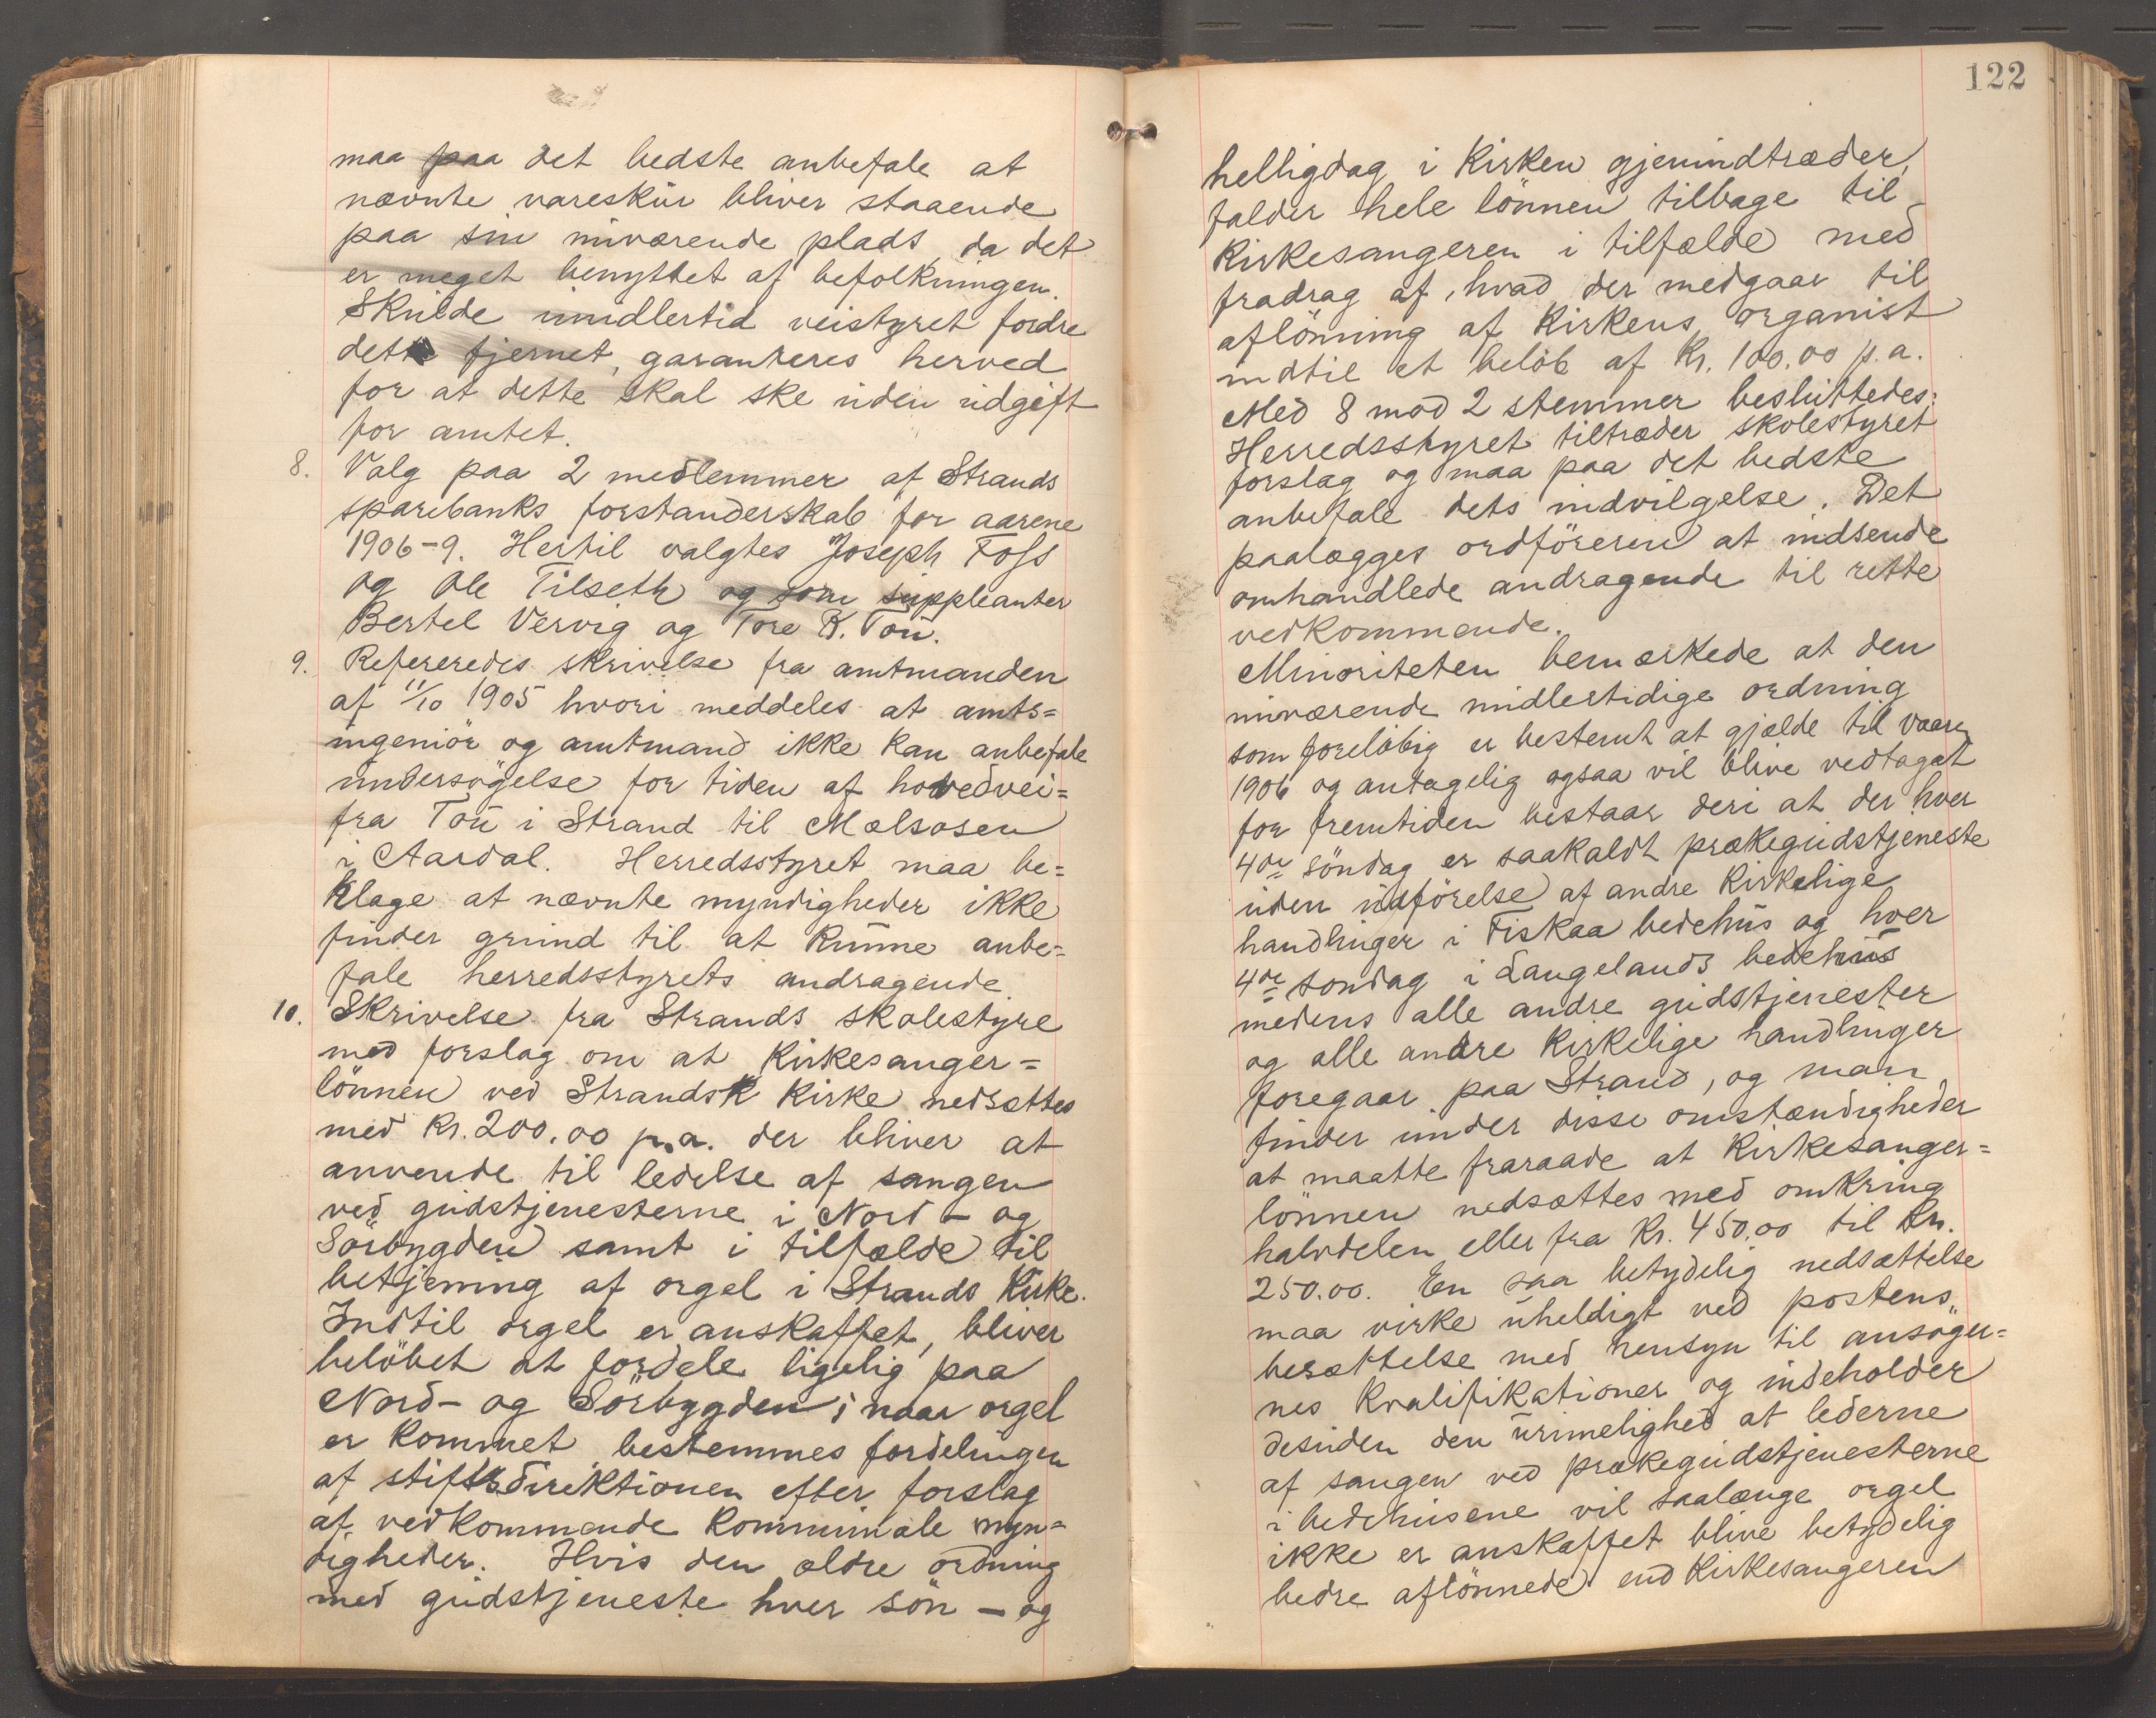 maa paa det bedste anbefale at
nævnte vareskur bliver staaende
paa sin nuværende plads da det
er meget benyttet af befolkningen.
Skulde imidlertid veistyret fordre
dette fjernet, garanteres herved
for at dette skal ske uden udgift
for amtet.
8. Valg paa 2 medlemmer af Strands
sparebanks forstanderskab for aarene
1906-9. Hertil valgtes Joseph Foss
og Ole Tilseth og som suppleanter
Bertel Vervig og Tore B. Tou.
9. Refereredes skrivelse fra amtmanden
af 11/10 1905 hvori meddeles at amts=
ingeniör og amtmand ikke kan anbefale
undersögelse for tiden af hovedvei=
fra Tou i Strand til Mælsosen
i Aardal. Herredsstyret maa be=
klage at nævnte myndigheder ikke
finder grund til at kunne anbe=
fale herredsstyrets andragende.
10. Skrivelse fra Strands skolestyre
med forslag om at kirkesanger=
lönnen ved Strands kirke nedsættes
med kr. 200,00 p.a. der bliver at
anvende til ledelse af sangen
ved gudstjenesterne i Nord- og
Sörbygden samt i tilfælde til
betjening af orgel i Strands kirke.
Indtil orgel er anskaffet, bliver
belöbet at fordele ligelig paa
Nord- og Sörbygden; naar orgel
er kommet bestemmes fordelingen
af stiftsdirektionen efter forslag
af vedkommende kommunale myn=
digheder. Hvis den ældre ordning
med gudstjeneste hver sön- og
122
helligdag i kirken gjenindtræder,
falder hele lönnen tilbage til
kirkesangeren i tilfælde med
fradrag af, hvad der medgaar til
aflönning af kirkens organist
indtil et belöb af kr. 100.00 p.a.
Med 8 mod 2 stemmer besluttedes:
Herredsstyret tiltræder skolestyret
forslag og maa paa det bedste
anbefale dets indvilgelse. Det
paalægges ordföreren at indsende
omhandlede andragende til rette
vedkommende.
Minoriteten bemærkede at den
nuværende midlertidige ordning
som foreløbig er bestemt at gjælde til vaaren
1906 og antagelig ogsaa vil blive vedtaget
for fremtiden bestaar deri at der hver
4de söndag er saakaldt prækegudstjeneste
uden udförelse af andre kirkelige
handlinger i Fiskaa bedehus og hver
4de söndag i Langelands bedehus
medens alle andre gudstjenester
og alle andre kirkelige handlinger
foregaar paa Strand, og man
finder under disse omstændigheder
at maatte fraraade at kirkesanger=
lönnen nedsættes med omkring
halvdelen eller fra kr. 450,00 til kr.
250.00. En saa betydelig nedsættelse
maa virke uheldigt ved postens
besættelse med hensyn til ansöger=
nes kvalifikationer og indeholder
desuden den urimelighed at lederne
af sangen ved prækegudstjenesterne
i bedehusene vil saalænge orgel
ikke er anskaffet blive betydelig
bedre aflönnede end kirkesangeren